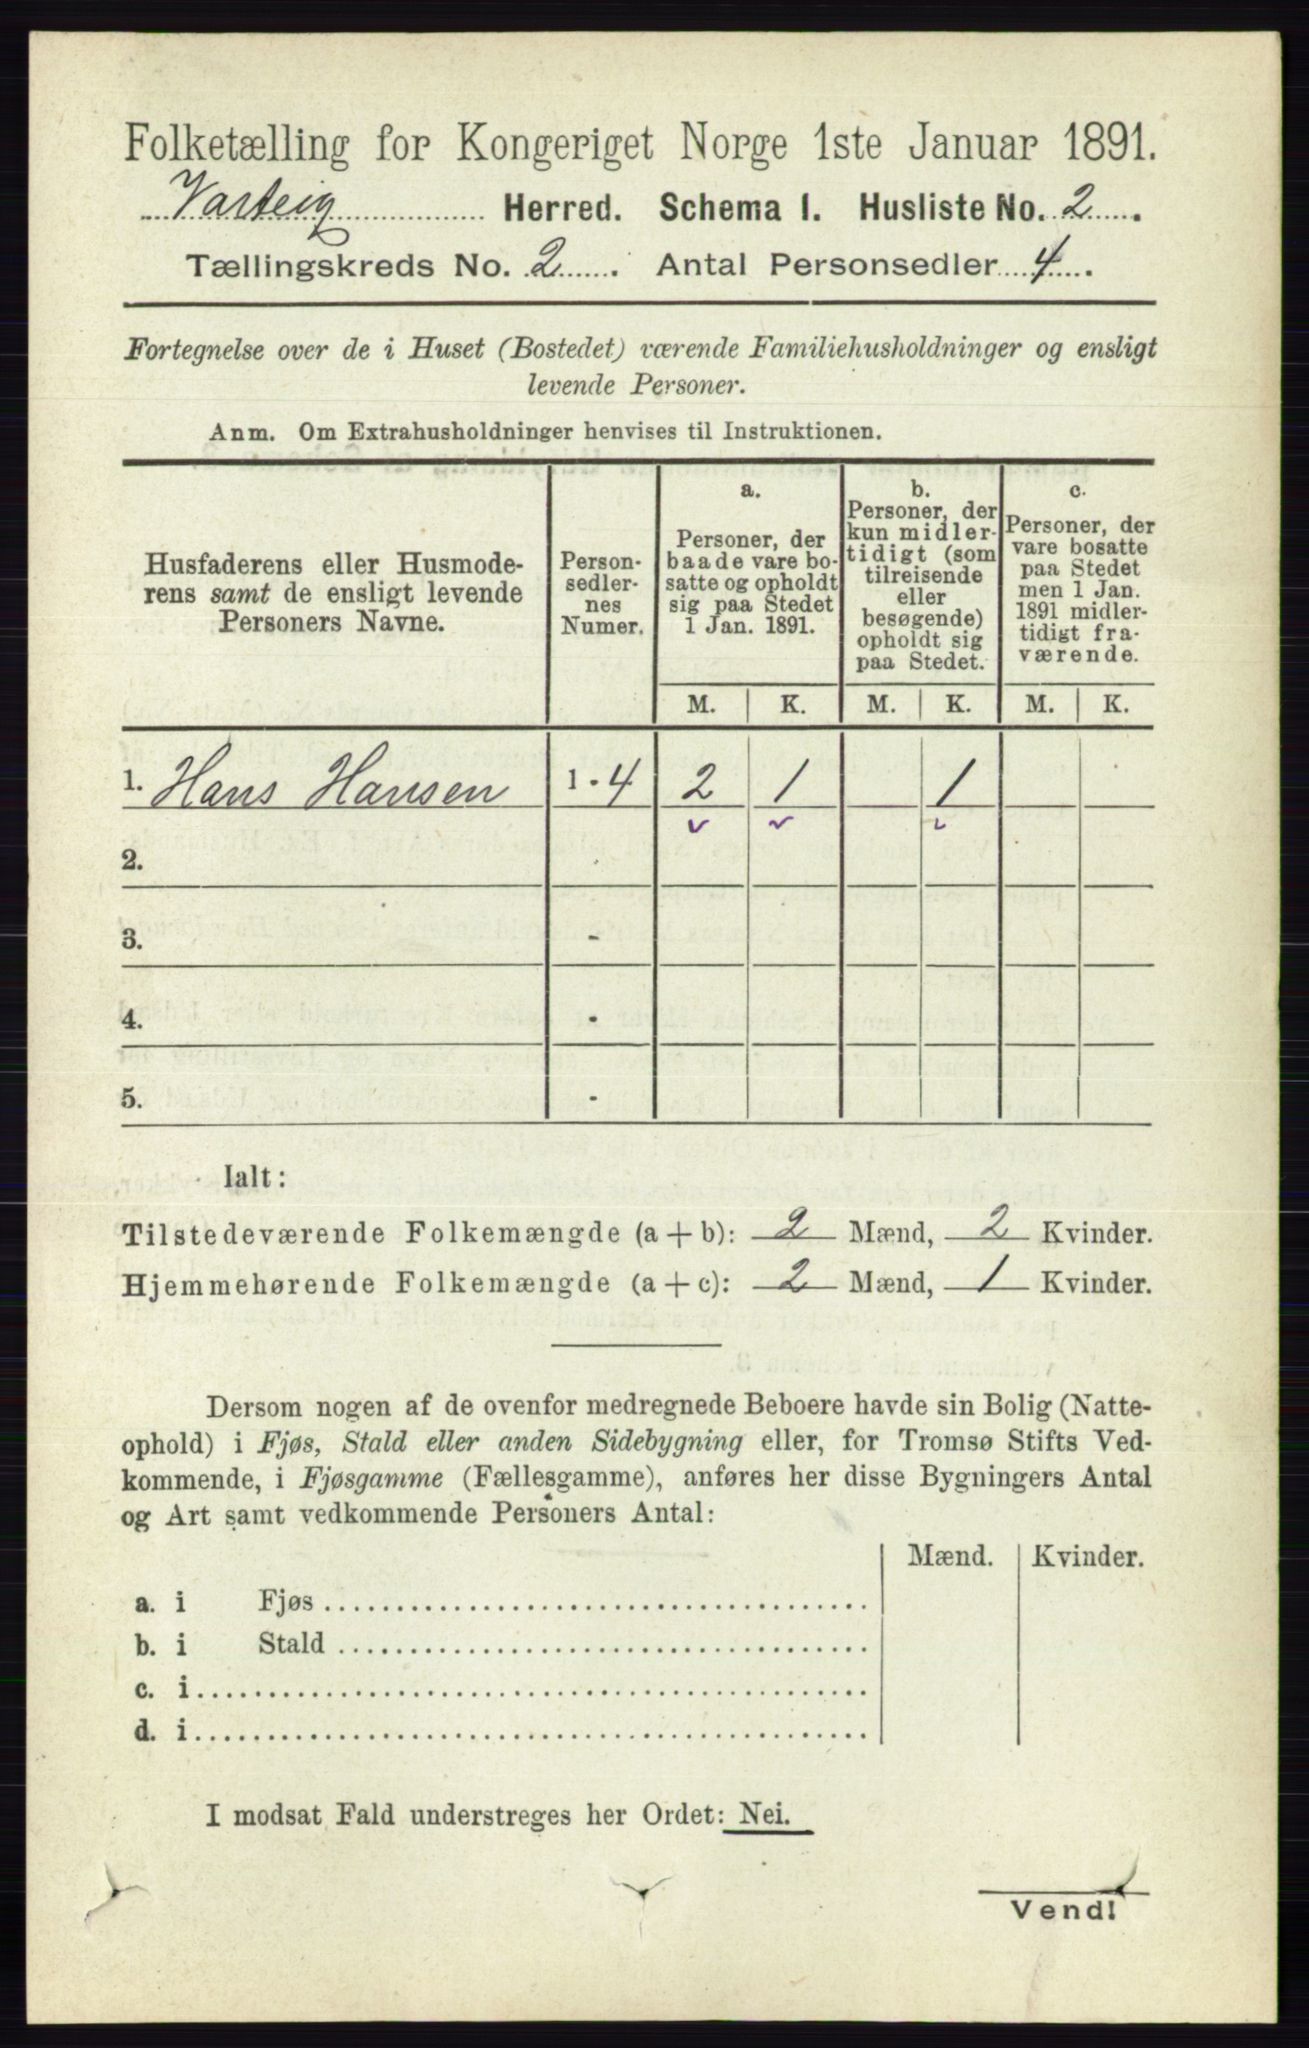 Folketælling for Kongeriget Norge 1ste Januar 1891.
Varteig Herred. Schema I. Husliste No. 2.
Tællingskreds No. 2. Antal Personsedler 4.
Fortegnelse over de i Huset (Bostedet) værende Familiehusholdninger og ensligt
levende Personer.
Anm. Om Extrahusholdninger henvises til Instruktionen.
Husfaderens eller Husmode-
rens samt de ensligt levende
Personers Navne.
Person-
sedler-
nes
Numer.
a.
Personer, der
baade vare bo-
satte og opholdt
sig paa Stedet
1 Jan. 1891.
b.
Personer, der
kun midler-
tidigt (som
tilreisende
eller
besøgende)
opholdt sig
paa Stedet.
c.
Personer, der
vare bosatte
paa Stedet
men 1 Jan.
1891 midler-
tidigt fra-
værende.
M. K. M. K. M. K.
1. Hans Hansen 1 - 4 2 1 1
2.
3. -
4. -
5. -
Ialt:
Tilstedeværende Folkemængde (a + b): 2 Mænd, 2 Kvinder.
Hjemmehørende Folkemængde (a + c): 2 Mænd, 1 Kvinder.
Dersom nogen af de ovenfor medregnede Beboere havde sin Bolig (Natte-
ophold) i Fjøs, Stald eller anden Sidebygning eller, for Tromsø Stifts Ved-
kommende, i Fjøsgamme (Fællesgamme), anføres her disse Bygningers Antal
og Art samt vedkommende Personers Antal:
Mænd. Kvinder.
a. i Fjøs
b. i Stald
c. i
d. i
I modsat Fald understreges her Ordet: Nei.
Vend!